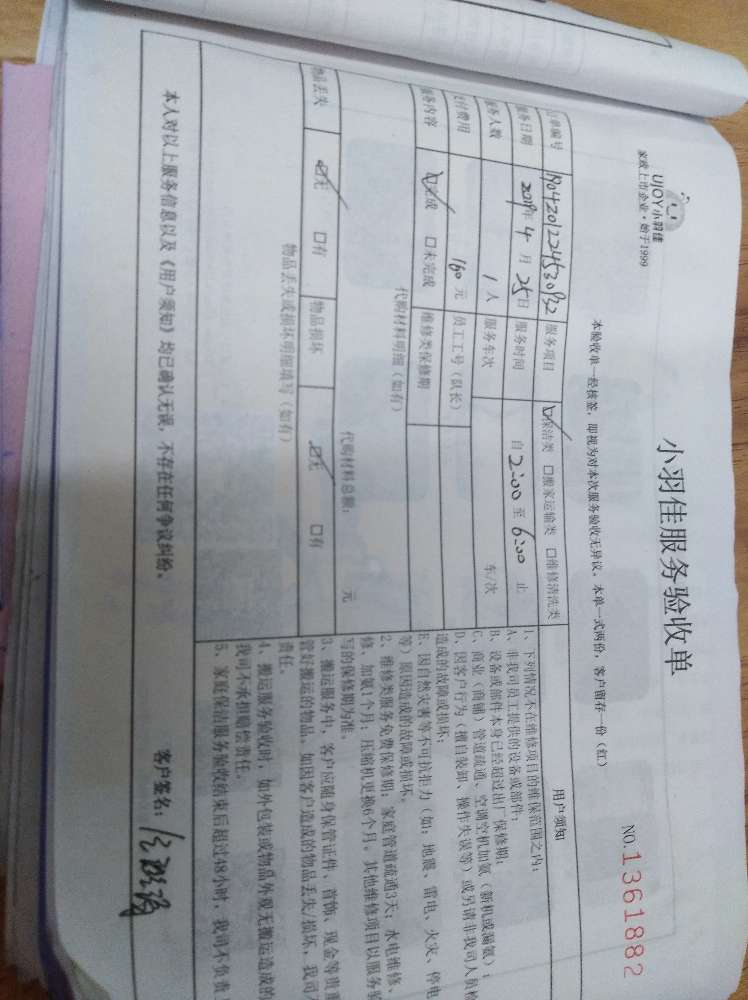 UJOY小羽佳
家政上市企业·始于1999
小羽佳服务验收单
NO.1361882
本验收单一经核签,即视为对本次服务验收无异议。本单一式两份,客户留存一份(红)
订单编号 服务项目 ☑保洁类 □搬家运输类 □维修清洗类
服务日期 2019年4月25日 服务时间 自2:00至6:00止
服务人数 1人 服务车次 车/次
支付费用 160元 员工工号(队长)
服务内容 ☑完成 □未完成 维修类保修期
代购材料明细(如有)
代购材料总额: 元
物品丢失 ☑无 □有 物品损坏 ☑无 □有
物品丢失或损坏明细填写(如有)
用户须知
1、下列情况不在维修项目的维保范围之内:
A、非我司员工提供的设备或部件;
B、设备或部件本身已经超过出厂保修期;
C、商业(商铺)管道疏通、空调空机加氨(新机或漏氨);
D、因客户行为(擅自装卸、操作失误等)或另请非我司人员检
造成的故障或损坏;
E、因自然灾害等不可抗拒力(如:地震、雷电、火灾、停电
等)原因造成的故障或损坏。
2、维修类服务免费保修期:家庭管道疏通3天;水电维修、
修、加氨1个月;压缩机更换6个月。其他维修项目以服务验
写的保修期为准。
3、搬运服务中,客户应随身保管证件、首饰、现金等贵重
管好搬运的物品。如因客户造成的物品丢失/损坏,我司
责任。
4、搬运服务验收时,如外包装或物品外观无搬运造成的
我司不承担赔偿责任。
5、家庭保洁服务验收结束后超过48小时,我司不负责
本人对以上服务信息以及《用户须知》均已确认无误,不存在任何争议纠纷。
客户签名: